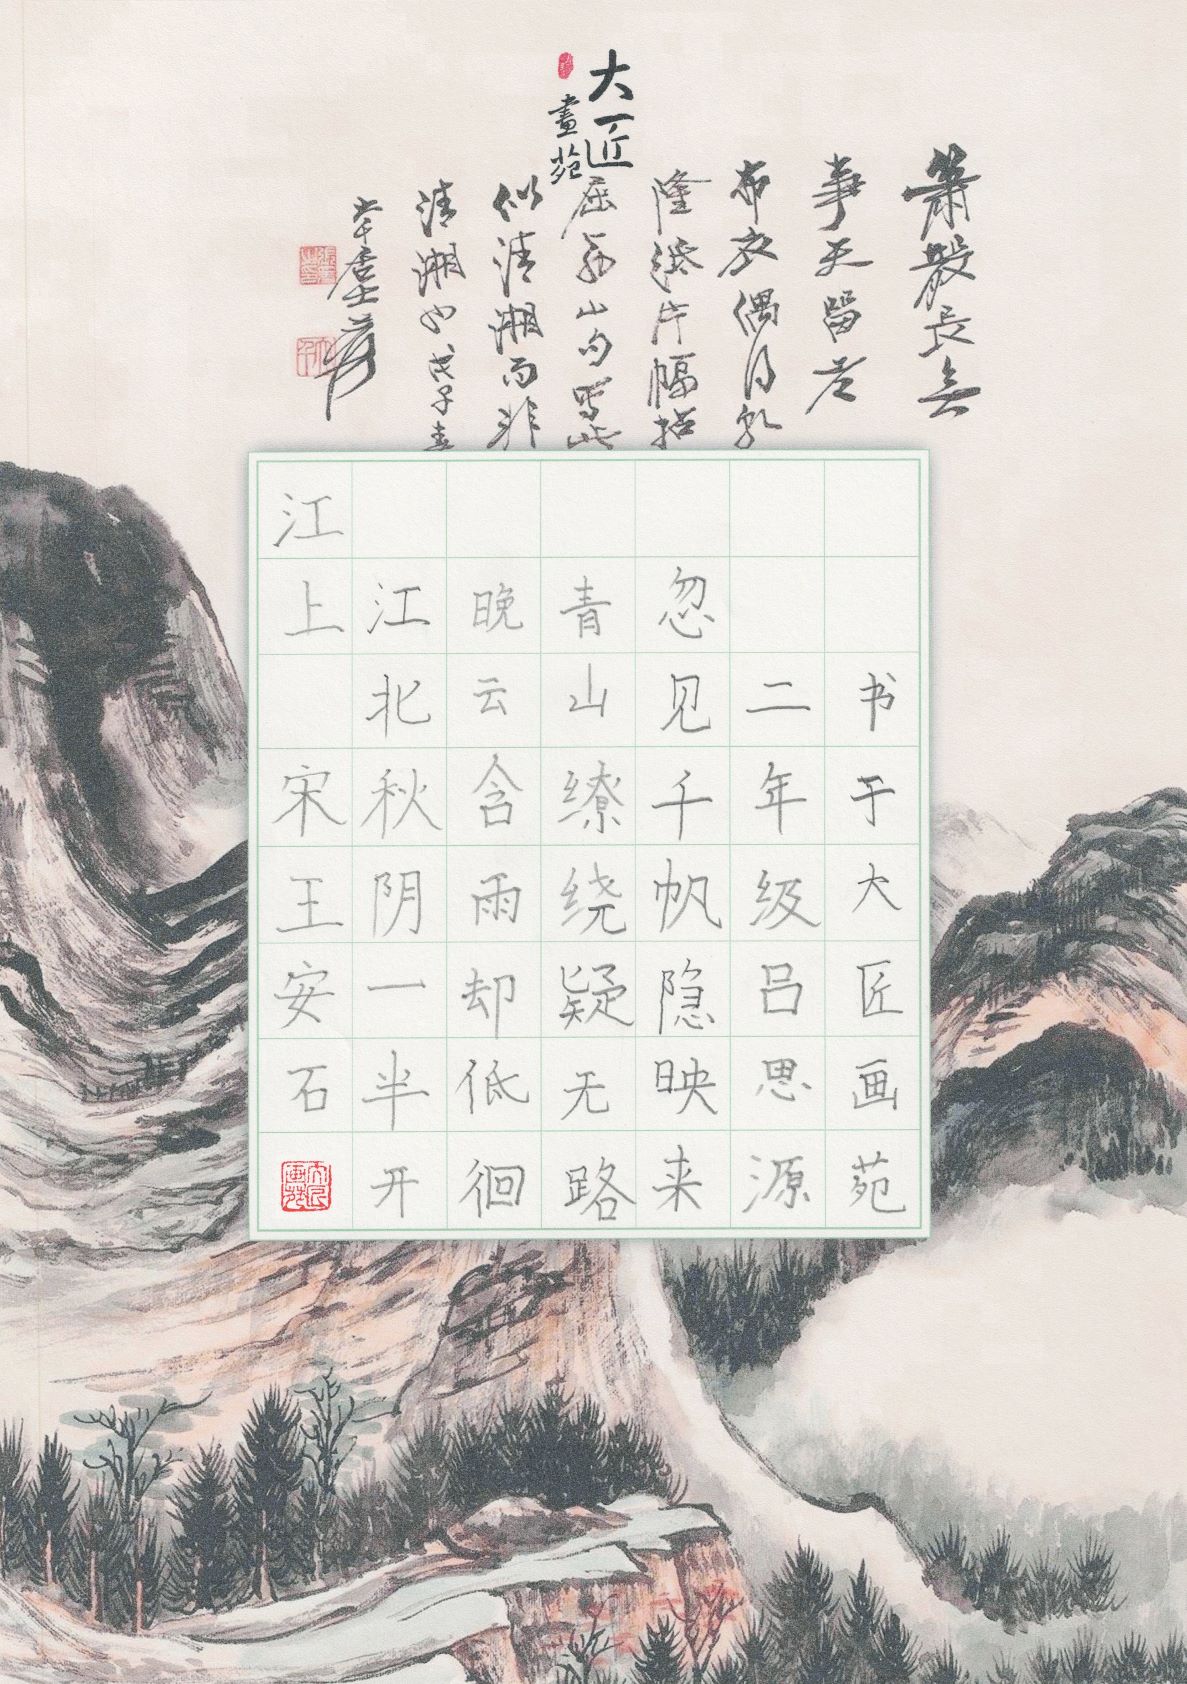 大匠
畫苑
蕭散長無
事天留老
布衣偶得乾
隆紙片幅拈
屈翁山句寫此
似清湘而非
清湘也戊子春
大千居士爰
江上 宋王安石
江北秋阴一半开
晚云含雨却低徊
青山缭绕疑无路
忽见千帆隐映来
二年级吕思源
书于大匠画苑
大匠画苑